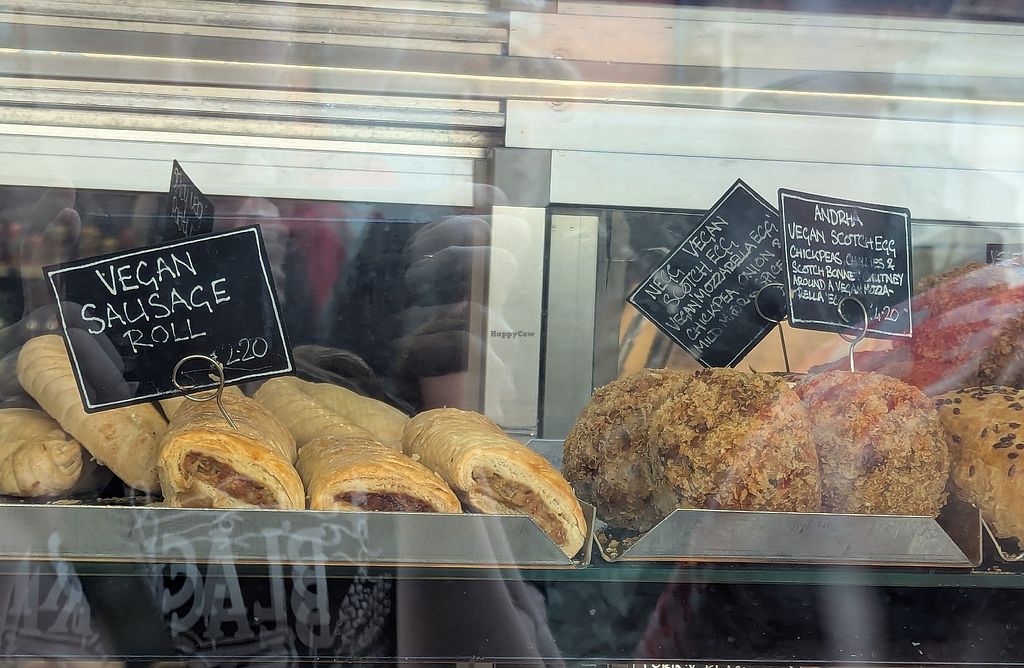 VEGAN
SAUSAGE
ROLL
2.20
HappyCow
VEGAN
SCOTCH EGG
VEGAN MOZZARELLA EGG
CHICKPEA ONION &
MILD SPICE
ANDRHA
VEGAN SCOTCH EGG
CHICKPEAS CHILIES &
SCOTCH BONNET CHUTNEY
AROUND A VEGAN MOZZA-
RELLA
4.20
BLAC